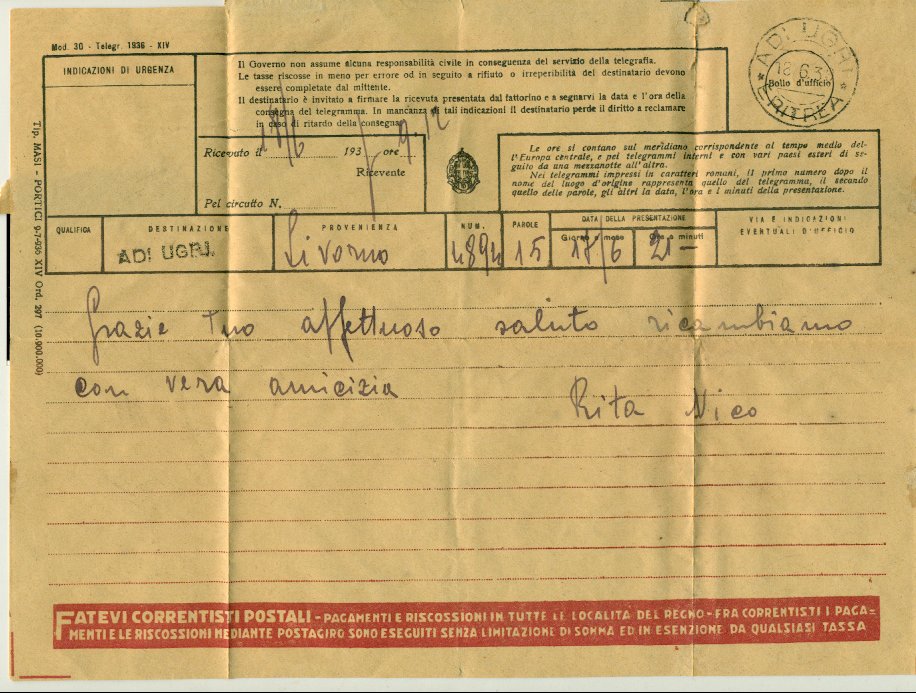 Mod. 30 - Telegr. 1936 - XIV
INDICAZIONI DI URGENZA
Il Governo non assume alcuna responsabilità civile in conseguenza del servizio della telegrafia.
Le tasse riscosse in meno per errore od in seguito a rifiuto o irreperibilità del destinatario devono
essere completate dal mittente.
Il destinatario è invitato a firmare la ricevuta presentata dal fattorino e a segnarvi la data e l'ora della
consegna del telegramma. In mancanza di tali indicazioni il destinatario perde il diritto a reclamare
in caso di ritardo della consegna.
ADI UGRI
18.6.3
Bollo d'ufficio
ERITREA
Ricevuto il 18/6 193 ore 9 12
Ricevente
Pel circuito N.
Le ore si contano sul meridiano corrispondente al tempo medio del-
l'Europa centrale, e pei telegrammi interni e con vari paesi esteri di se-
guito da una mezzanotte all'altra.
Nei telegrammi impressi in caratteri romani, il primo numero dopo il
nome del luogo d'origine rappresenta quello del telegramma, il secondo
quello delle parole, gli altri la data, l'ora e i minuti della presentazione.
QUALIFICA
DESTINAZIONE
ADI UGRI.
PROVENIENZA
Livorno
NUM.
4894
PAROLE
15
DATA DELLA PRESENTAZIONE
Giorno e mese
17/6
Ore e minuti
21 —
VIA E INDICAZIONI
EVENTUALI D'UFFICIO
Tip. MASI - PORTICI 9-7-936 XIV Ord. 297 (10.900.000)
Grazie tuo affettuoso saluto ricambiamo
con vera amicizia Rita Nico
FATEVI CORRENTISTI POSTALI - PAGAMENTI E RISCOSSIONI IN TUTTE LE LOCALITÀ DEL REGNO - FRA CORRENTISTI I PAGA-
MENTI E LE RISCOSSIONI MEDIANTE POSTAGIRO SONO ESEGUITI SENZA LIMITAZIONE DI SOMMA ED IN ESENZIONE DA QUALSIASI TASSA